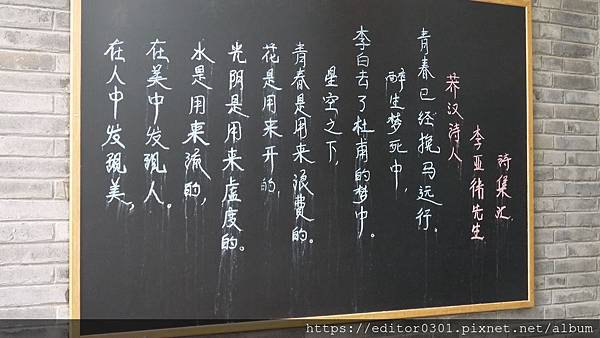 诗集
李亚伟先生
莽汉诗人
青春已经马远行。
醉生梦死中
李白去了杜甫的梦中。
星空之下,
青春是用来浪费的。
花是用来开的,
光阴是用来虚度的。
水是用来流的,
在美中发现人。
在人中发现美,
https://editor0301.pixnet.net/album